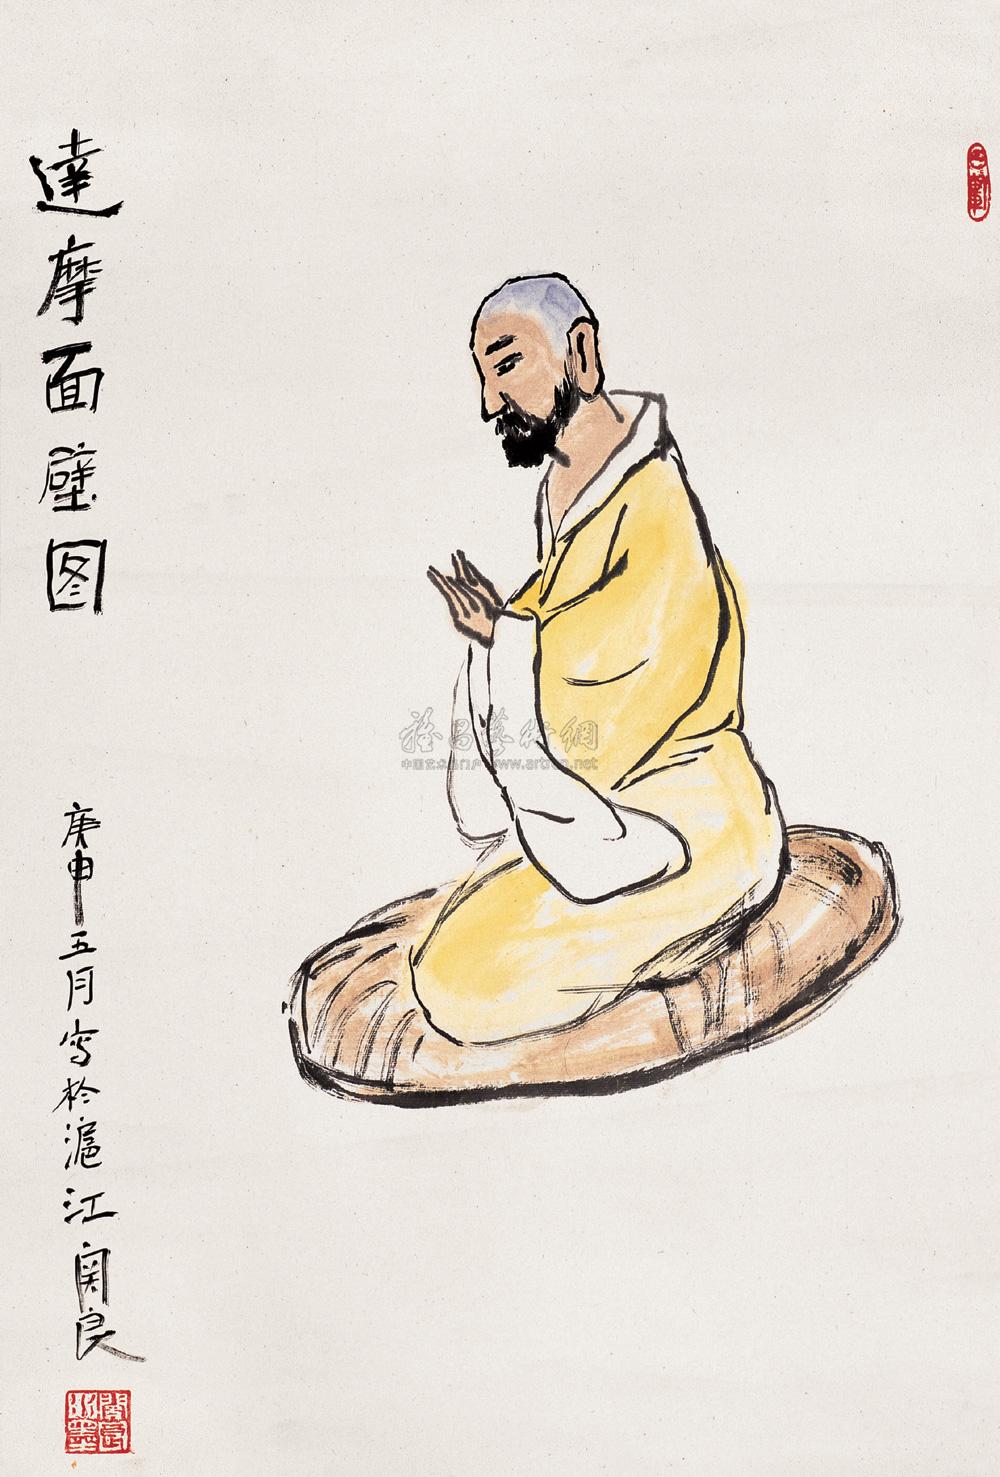 達摩面壁图
庚申五月写於滬江关良
中国艺术品门户www.artron.net